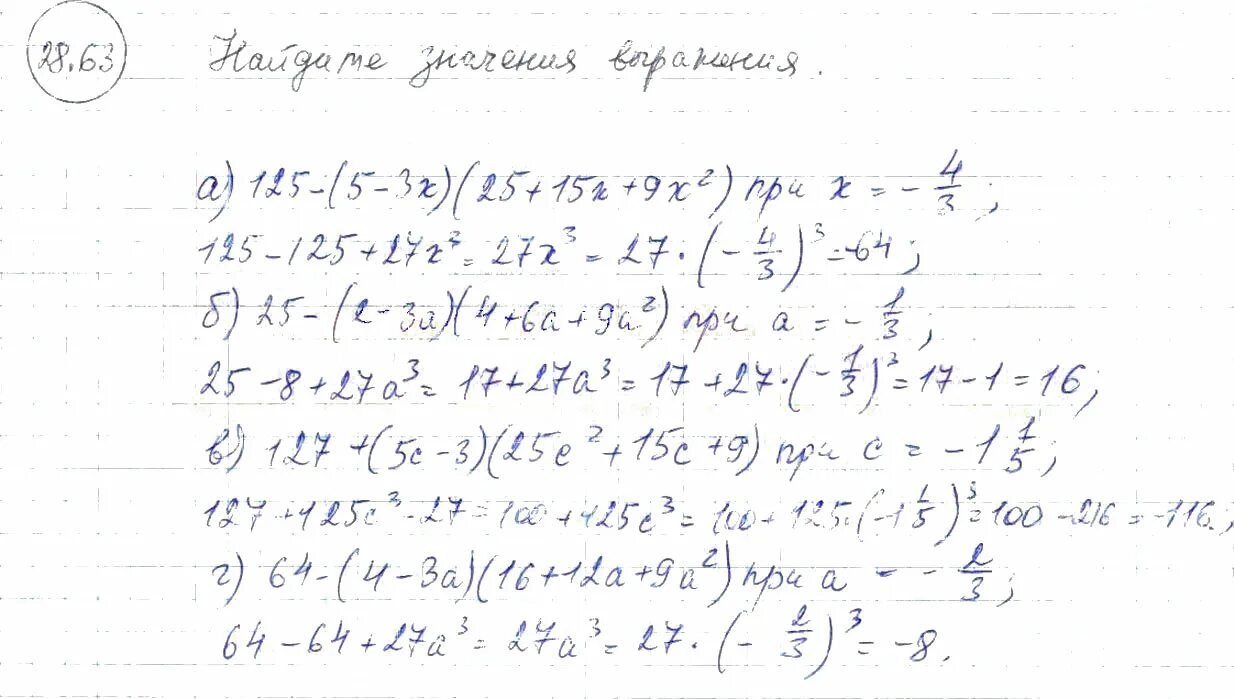 28.63 Найдите значения выражения.
а) 125-(5-3x)(25+15x+9x²) при x = -4/3;
125-125+27x³ = 27x³ = 27·(-4/3)³ = -64;
б) 25-(2-3a)(4+6a+9a²) при a = -1/3;
25-8+27a³ = 17+27a³ = 17+27·(-1/3)³ = 17-1 = 16;
в) 127+(5c-3)(25c²+15c+9) при c = -1 1/5;
127+125c³-27 = 100+125c³ = 100+125·(-1 1/5)³ = 100-216 = -116;
г) 64-(4-3a)(16+12a+9a²) при a = -2/3;
64-64+27a³ = 27a³ = 27·(-2/3)³ = -8.